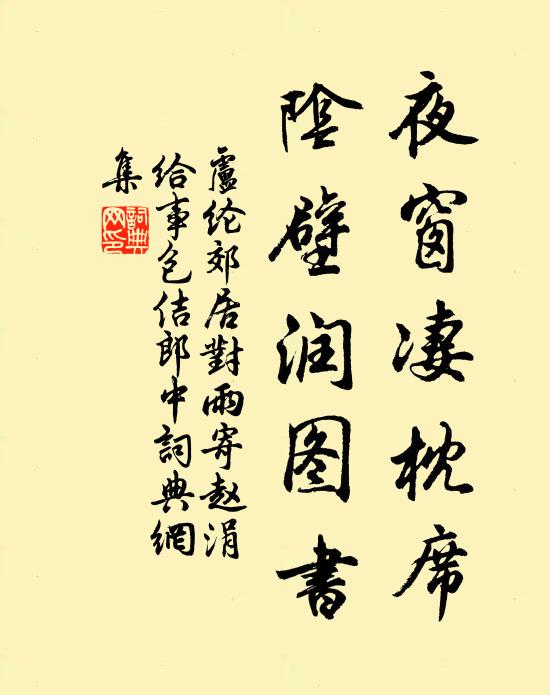 夜窗凄枕席
陰壁润图書
盧纶郊居對雨寄赵涓
给事包佶郎中詞典網
集
詞典
网印